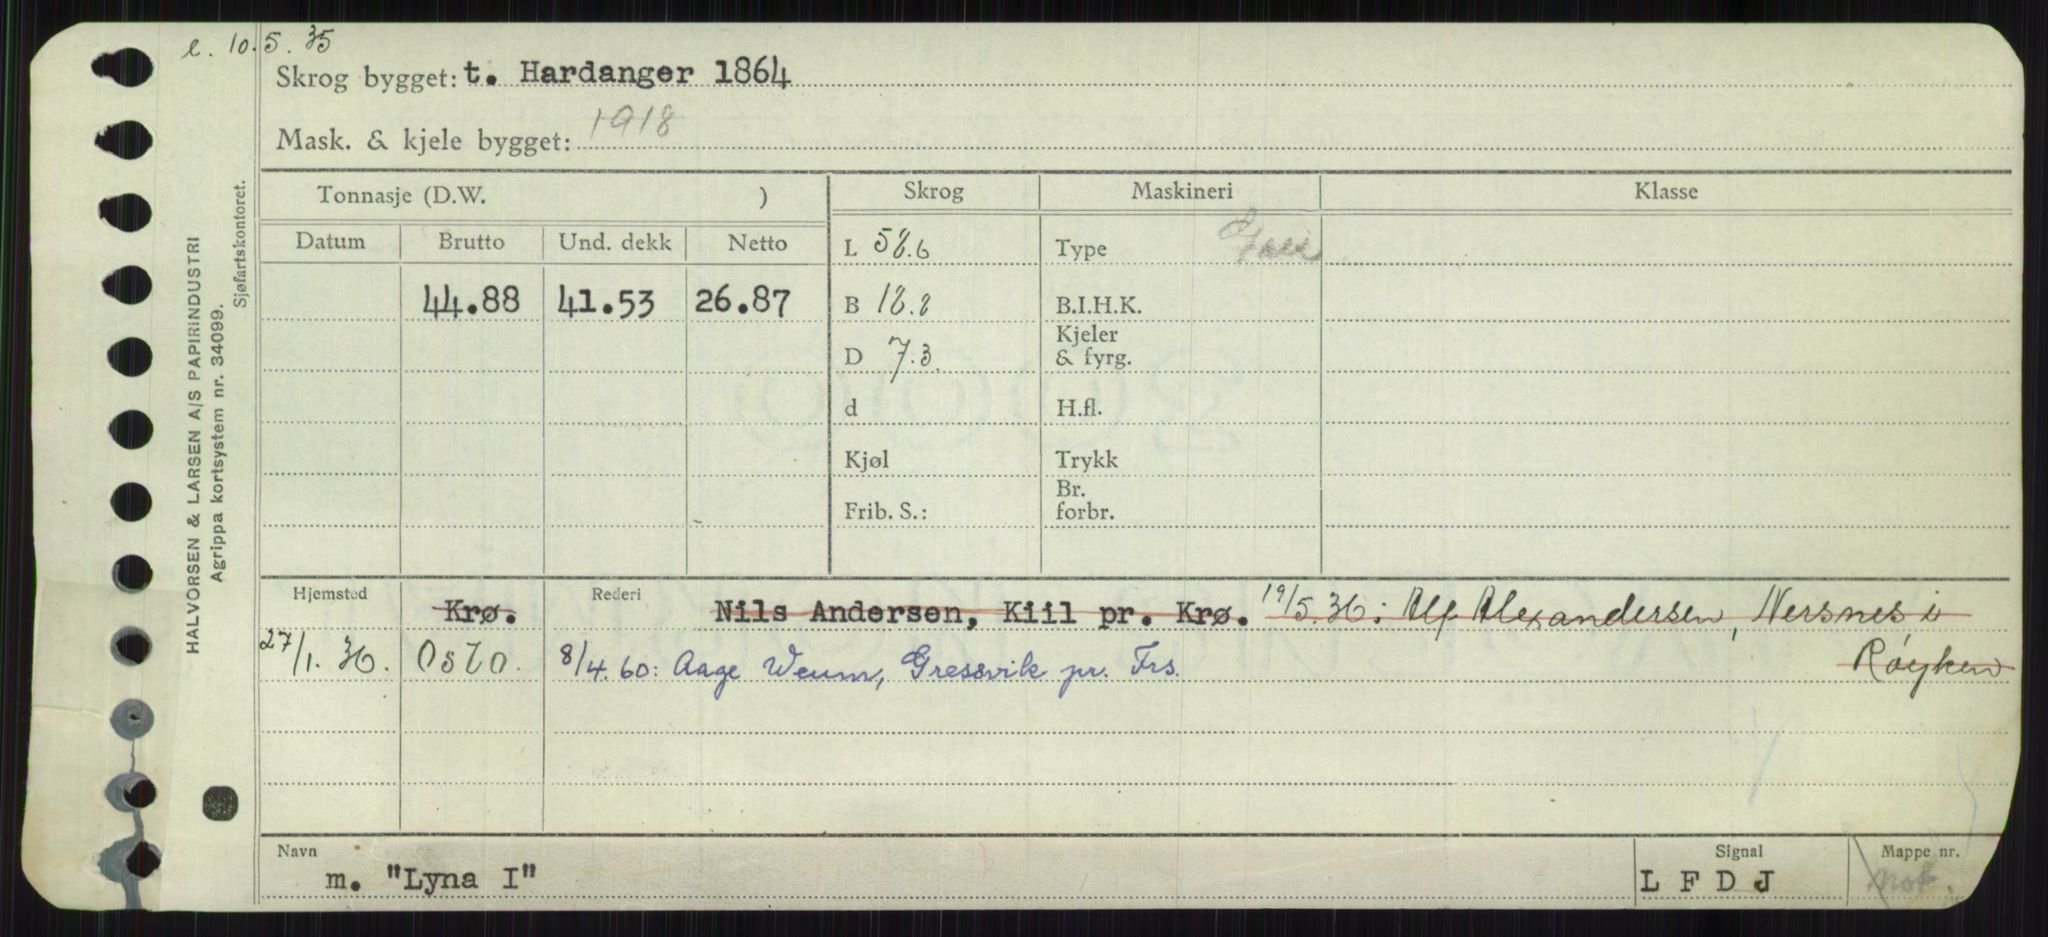 e. 10.5.35
Skrog bygget: t. Hardanger 1864
Mask. & kjele bygget: 1918
HALVORSEN & LARSEN A/S PAPIRINDUSTRI
Agrippa kortsystem nr. 34099.
Sjøfartskontoret.
Tonnasje (D.W. ) Skrog Maskineri Klasse
Datum Brutto Und. dekk Netto L 58.6 Type
44.88 41.53 26.87 B 18.8 B.I.H.K.
D 7.3. Kjeler & fyrg.
d H.fl.
Kjøl Trykk
Frib. S.: Br. forbr.
Hjemsted Krø. Rederi Nils Andersen, Kiil pr. Krø. 19/5.36: Alf Alexandersen, Nersnes i
Røyken
27/1.36. Oslo. 8/4.60: Aage Weum, Gressvik pr. Frs.
Navn Signal Mappe nr.
m. "Lyna I" L F D J Mot.